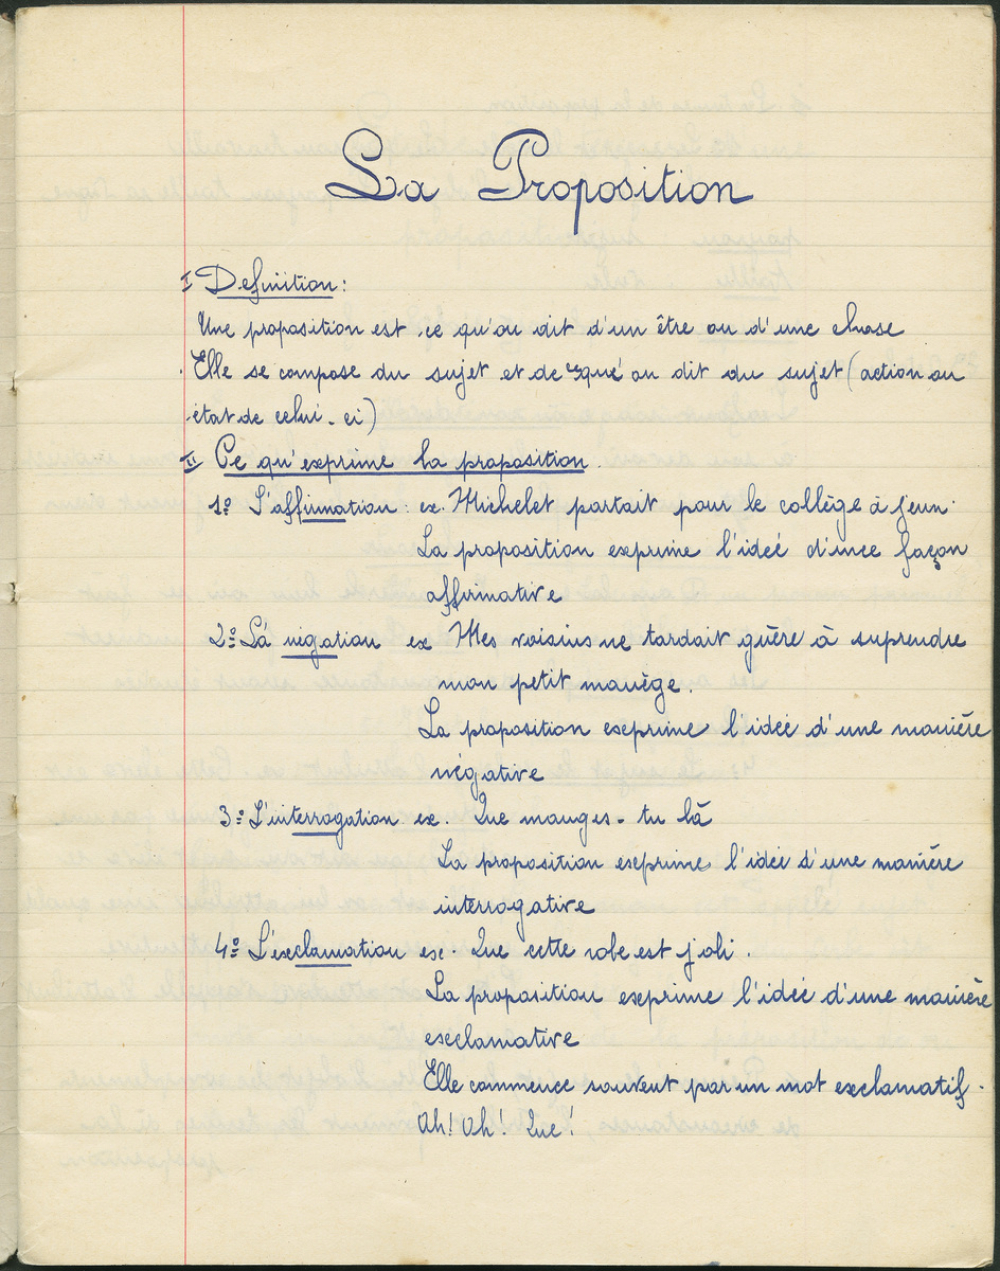 La Proposition
I Definition:
Une proposition est ce qu'on dit d'un être ou d'une chose
Elle se compose du sujet et de ce qué on dit du sujet (action ou
état de celui-ci)
II Ce qu'exprime la proposition.
1º L'affirmation: ex. Michelet partait pour le collège à jeun.
La proposition exprime l'idée d'une façon
affirmative
2º La négation ex Mes voisins ne tardait guère à suprendre
mon petit manège.
La proposition exprime l'idée d'une manière
négative
3º L'interrogation ex. Que manges-tu là
La proposition exprime l'idée d'une manière
interrogative
4º L'exclamation ex. Que cette robe est joli.
La proposition exprime l'idée d'une manière
exclamative
Elle commence souvent par un mot exclamatif.
Ah! Oh! Que!